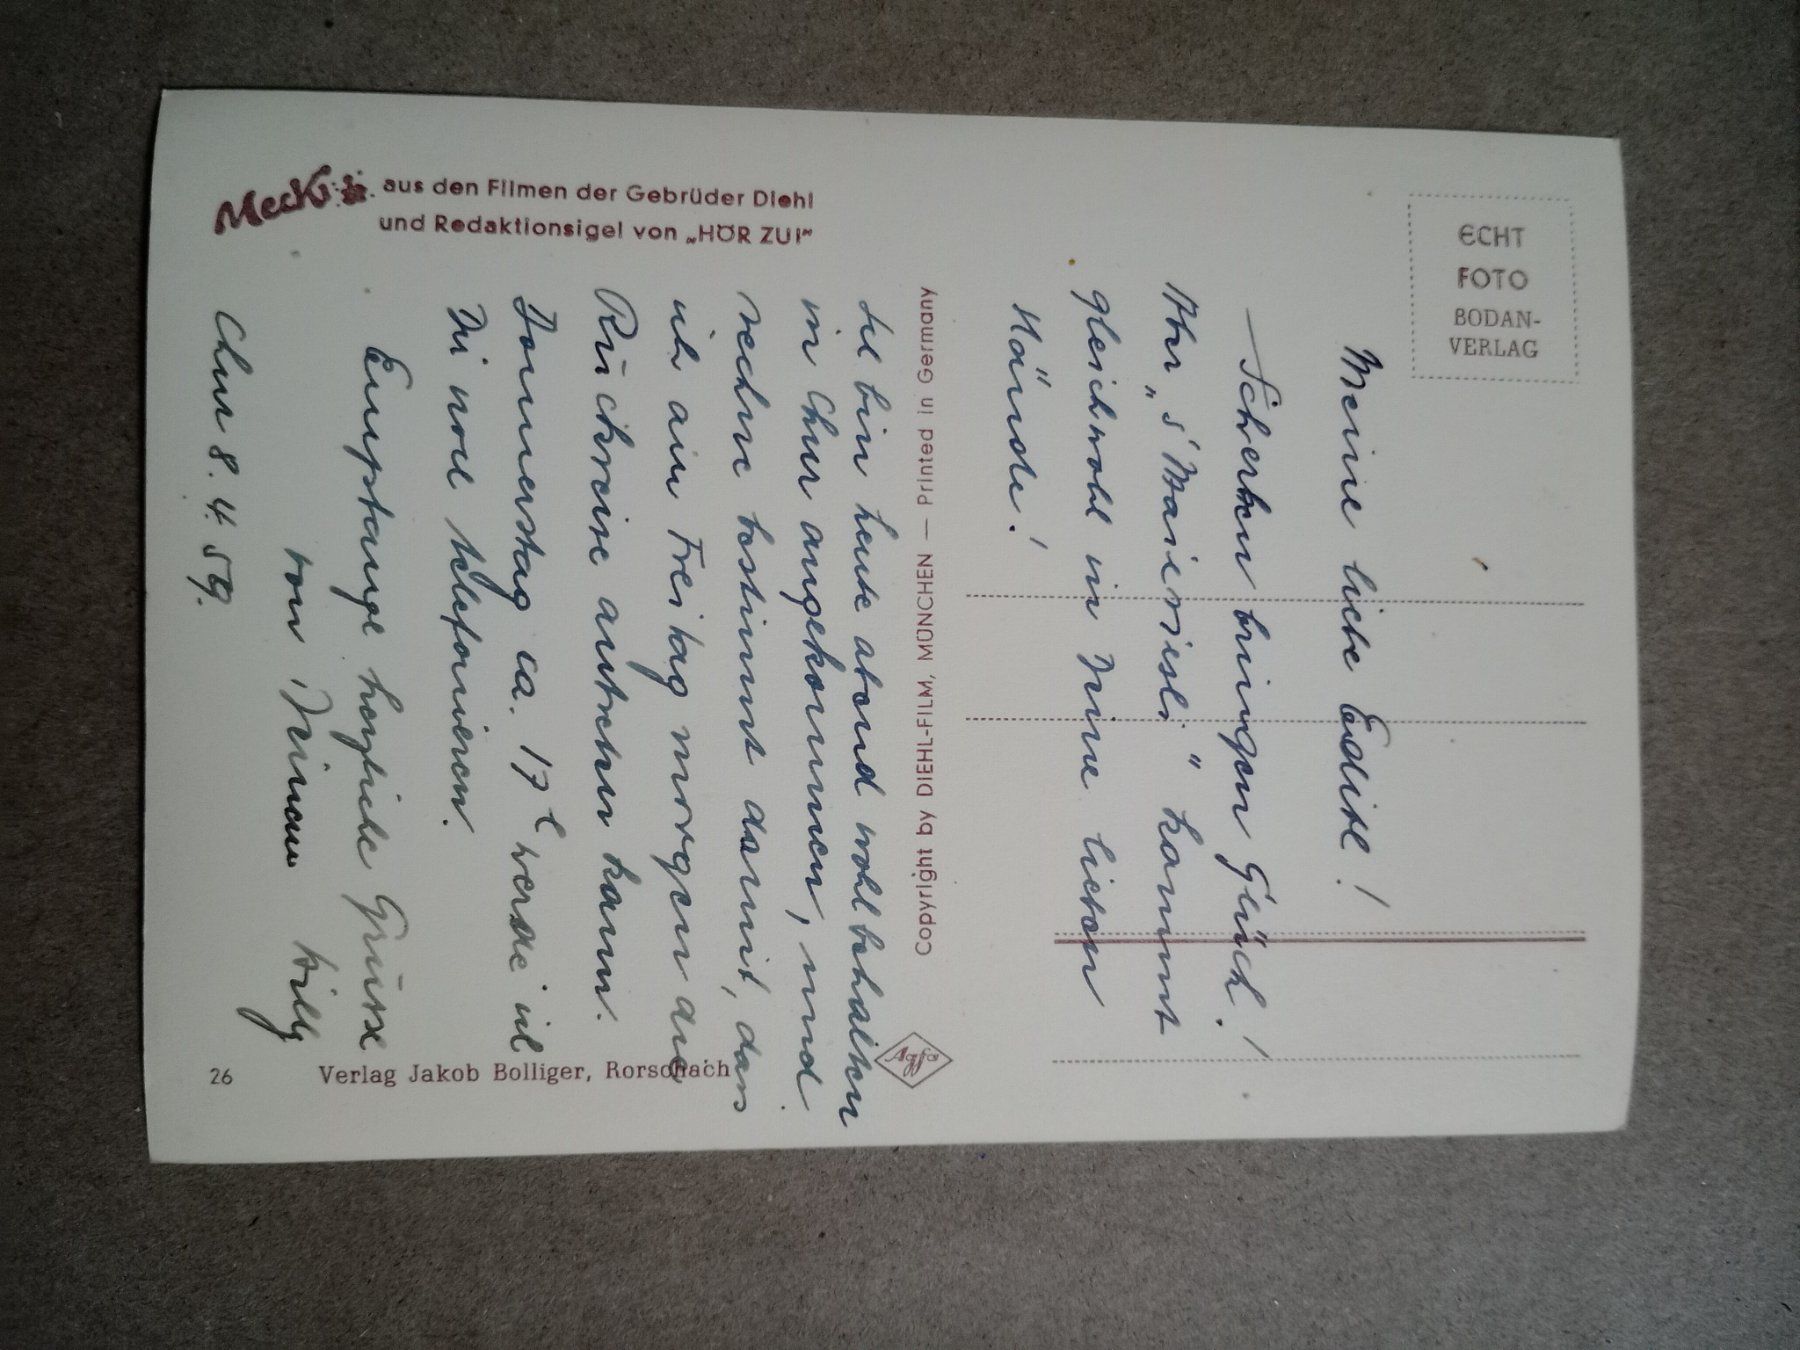 Mecki aus den Filmen der Gebrüder Diehl
und Redaktionsigel von „HÖR ZU!"
ECHT
FOTO
BODAN-
VERLAG
Copyright by DIEHL-FILM, MÜNCHEN — Printed in Germany
Agfa
26
Verlag Jakob Bolliger, Rorschach
Meine liebe Edith!
Scherben bringen Glück!
Aber „s'Maierisli" kommt
gleichwohl in Deine lieben
Hände!
Ich bin heute abend wohlbehalten
in Chur angekommen, und
rechne bestimmt damit, dass
ich am Freitag morgen die
Rückreise antreten kann.
Donnerstag ca. 17 h werde ich
Dir noch telefonieren.
Empfange herzliche Grüsse
von Deinem Willy
Chur 8. 4. 59.